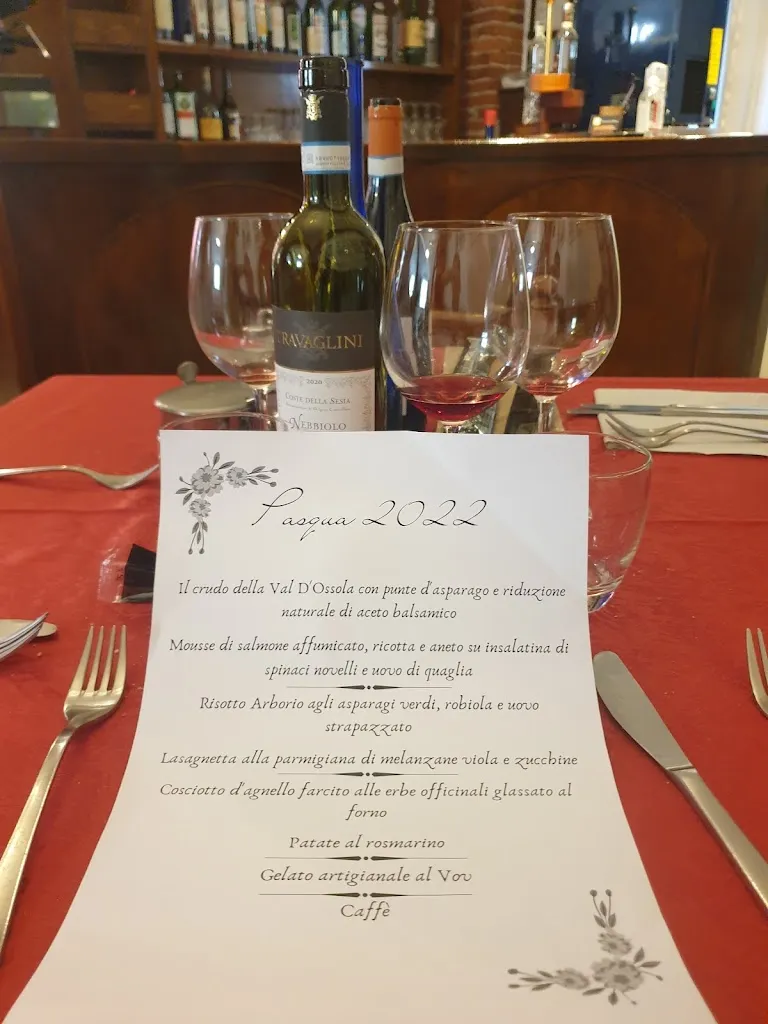 RAVAGLINI
2020
COSTE DELLA SESIA
NEBBIOLO
Pasqua 2022
Il crudo della Val D'Ossola con punte d'asparago e riduzione
naturale di aceto balsamico
Mousse di salmone affumicato, ricotta e aneto su insalatina di
spinaci novelli e uovo di quaglia
Risotto Arborio agli asparagi verdi, robiola e uovo
strapazzato
Lasagnetta alla parmigiana di melanzane viola e zucchine
Cosciotto d'agnello farcito alle erbe officinali glassato al
forno
Patate al rosmarino
Gelato artigianale al Vov
Caffè